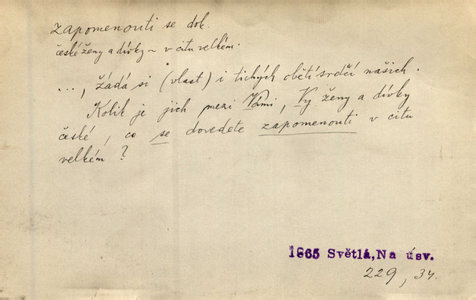 zapomenouti se dok.
české ženy a dívky ~ v citu velkém.
..., žádá si (vlast) i tichých obětí srdcí našich.
Kolik je jich mezi Vámi, Vy ženy a dívky
české, co se dovedete zapomenouti v citu
velkém?
1865 Světlá, Na úsv.
229, 34.